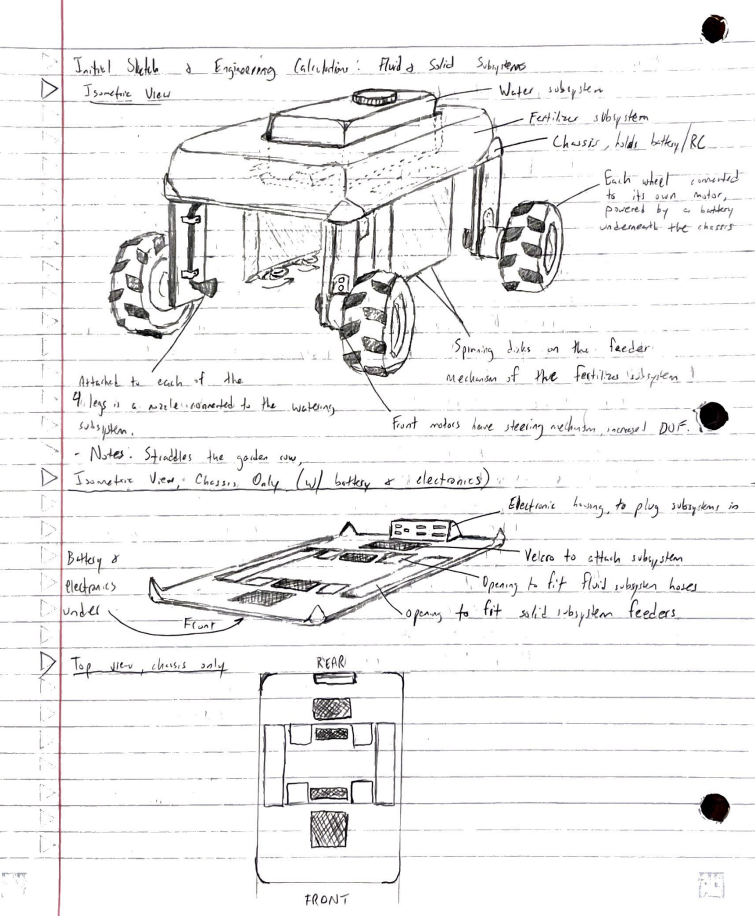 Initial Sketch & Engineering Calculations: Fluid & Solid Subsystems
Isometric View
Water subsystem
Fertilizer subsystem
Chassis, holds battery/RC
Each wheel connected
to its own motor,
powered by a battery
underneath the chassis
Spinning disks on the feeder
mechanism of the fertilizer subsystem
Attached to each of the
4 legs is a nozzle connected to the watering
subsystem.
Front motors have steering mechanism, increased DOF.
- Notes: Straddles the garden row,
Isometric View, Chassis Only (w/ battery & electronics)
Electronic housing, to plug subsystems in
Velcro to attach subsystem
Battery &
electronics
under
Opening to fit fluid subsystem hoses
opening to fit solid subsystem feeders
Front
Top view, chassis only
REAR
FRONT